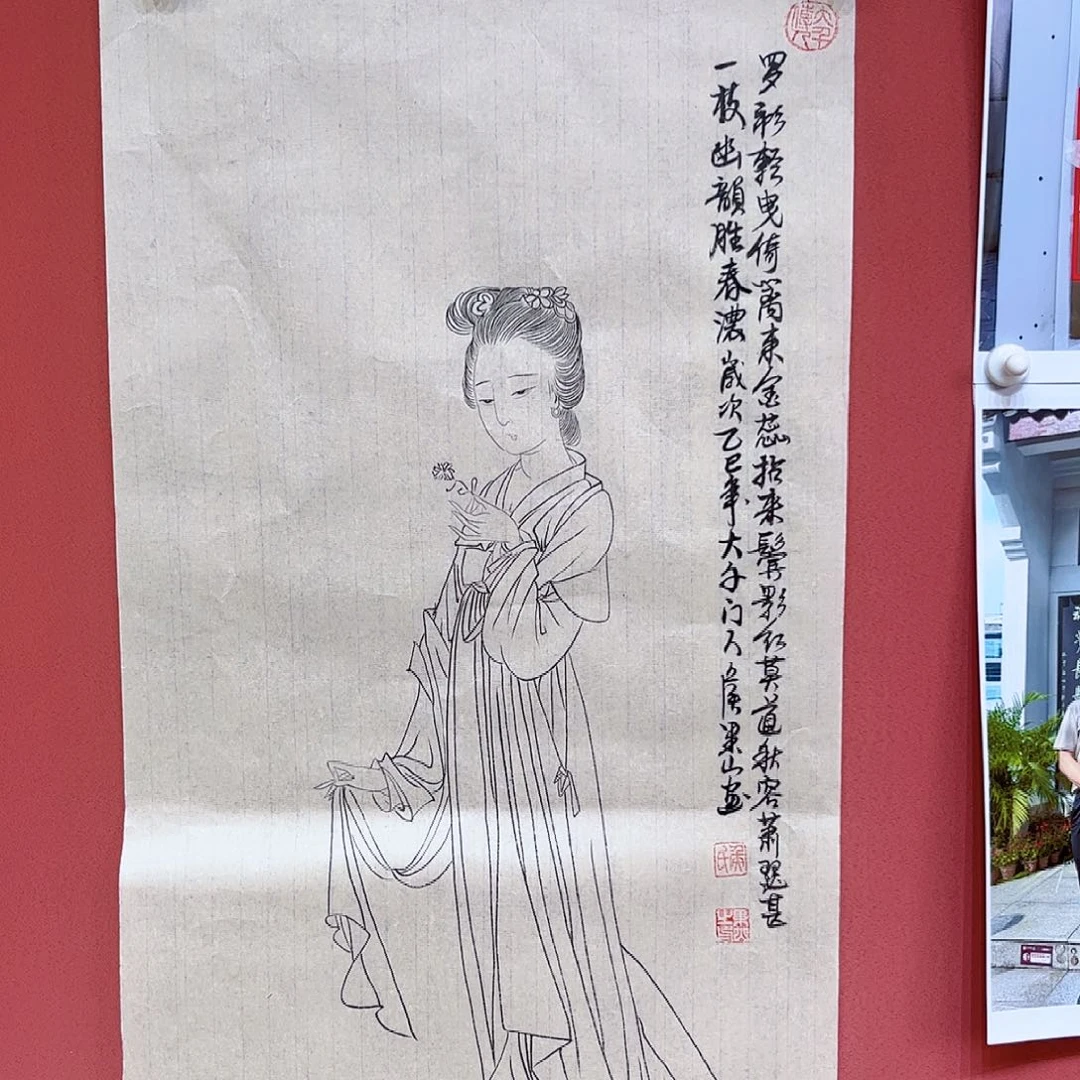 罗衫轻曳倚篱东金蕊拈来鬓影红莫道秋容萧瑟甚
一枝幽韻胜春濃歲次乙巳年大千门人廣梁山画